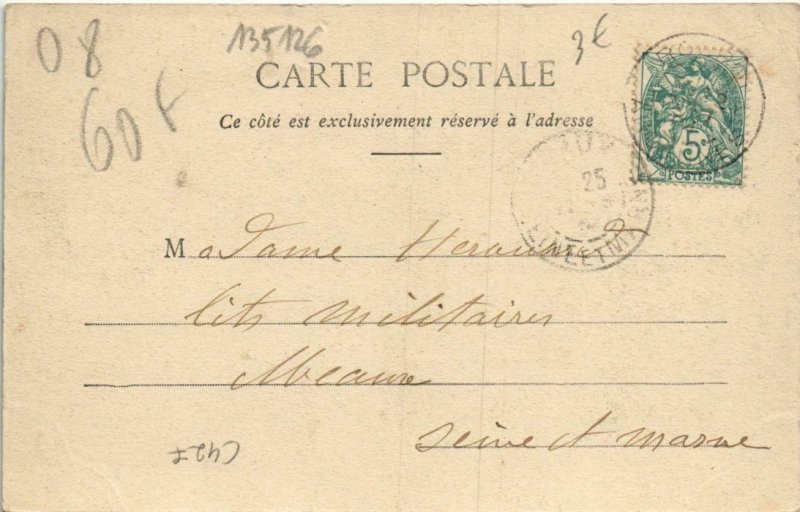 08
60 F
135126
3€
CARTE POSTALE
Ce côté est exclusivement réservé à l'adresse
5c
POSTES
25
SEINE ET MARNE
Madame
lits militaires
Meaux
Seine et Marne
C42F